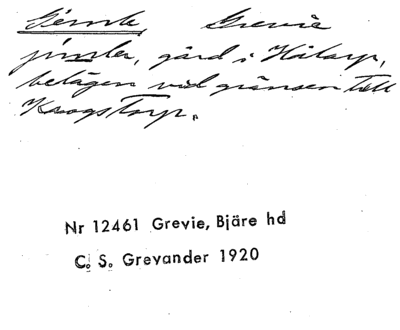 Grevie
gård i Killarp,
belägen vid gränsen till
Krogstorp.
Nr 12461 Grevie, Bjäre hd
C. S. Grevander 1920